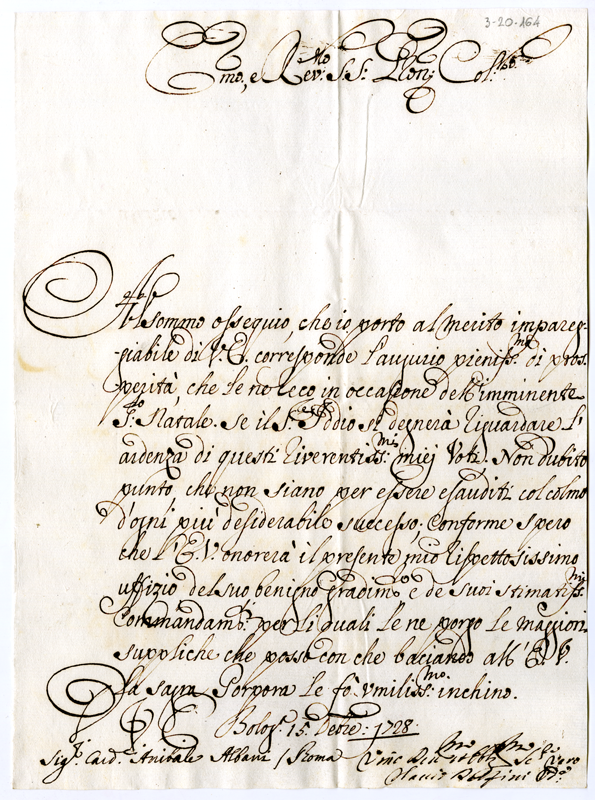 3-20-164
Emo, e Rev:mo S.S: Pron: Col:mo
Al sommo ossequio, che io porto al merito impareg-
giabile di V. E. corrisponde l'augurio pieniss:mo di pros-
perità, che le ne reco in occasione dell'imminente
S:to Natale. Se il S: Iddio si degnerà riguardare l'
ardenza di questi riverentiss:mi miej voti. Non dubito
punto, che non siano per essere esauditi col colmo
d'ogni più desiderabile successo; conforme spero
che l'E. V. onorerà il presente mio rispettosissimo
uffizio del suo benigno gradim:to e de suoi stimatiss:mi
Commandam:ti per li quali le ne porgo le maggiori
suppliche che posso con che baciando all'E. V.
la sagra Porpora le fò umiliss:mo inchino.
D. V. E.
Bolog:a 15. Xbre: 1728
Sig:r Card: Anibale Albani / Roma